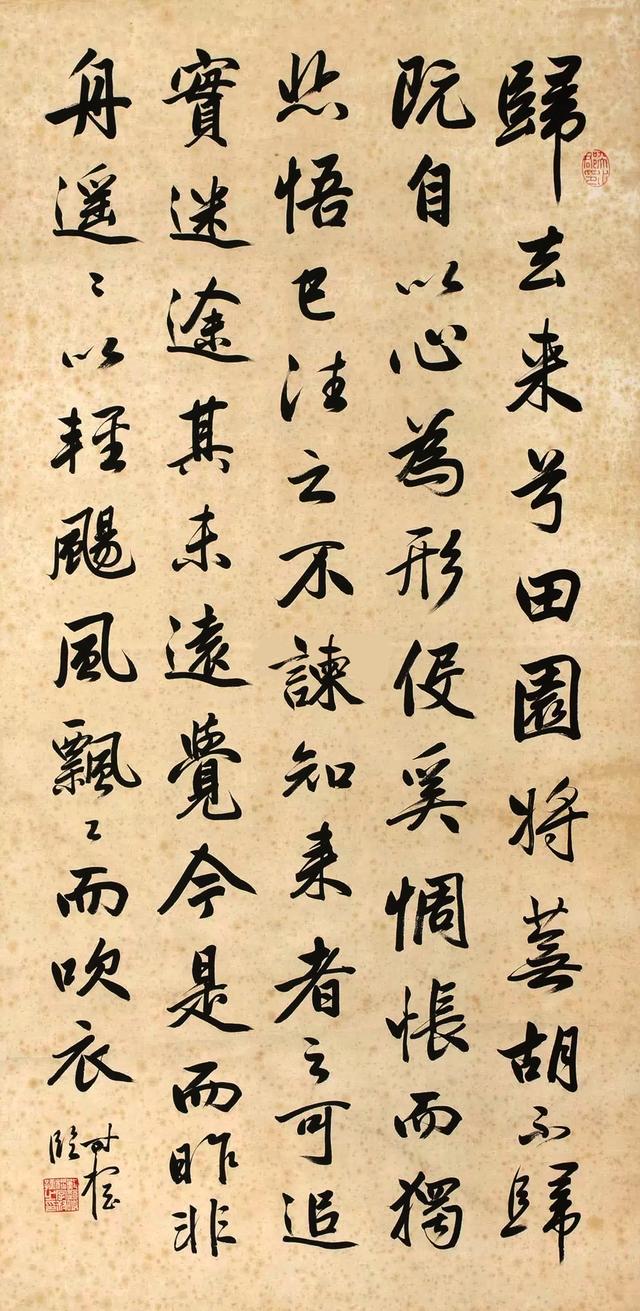 歸去来兮田園將蕪胡不歸
既自以心為形役奚惆悵而獨
悲悟已往之不諫知来者之可追
實迷途其未遠覺今是而昨非
舟遥〻以輕颺風飄〻而吹衣
臨